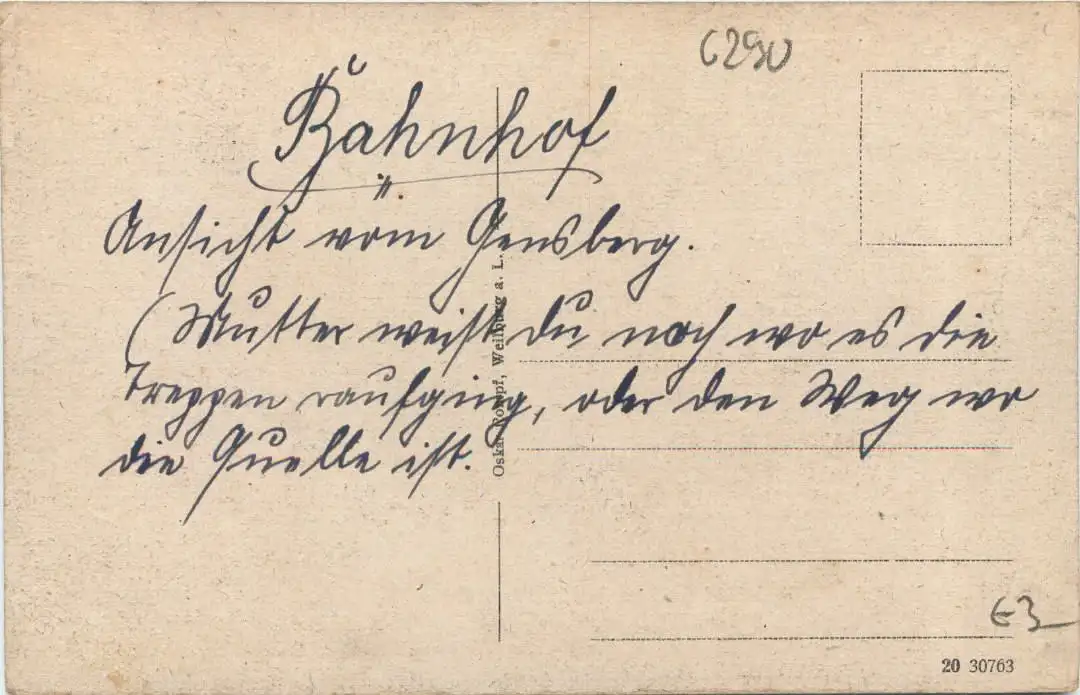 6290
Bahnhof
Ansicht vom Gensberg.
(Mutter weist du noch wo es die
Treppen raufging, oder den Weg wo
die Quelle ist.
Oskar Kompf, Weilburg a. L.
€3
20 30763